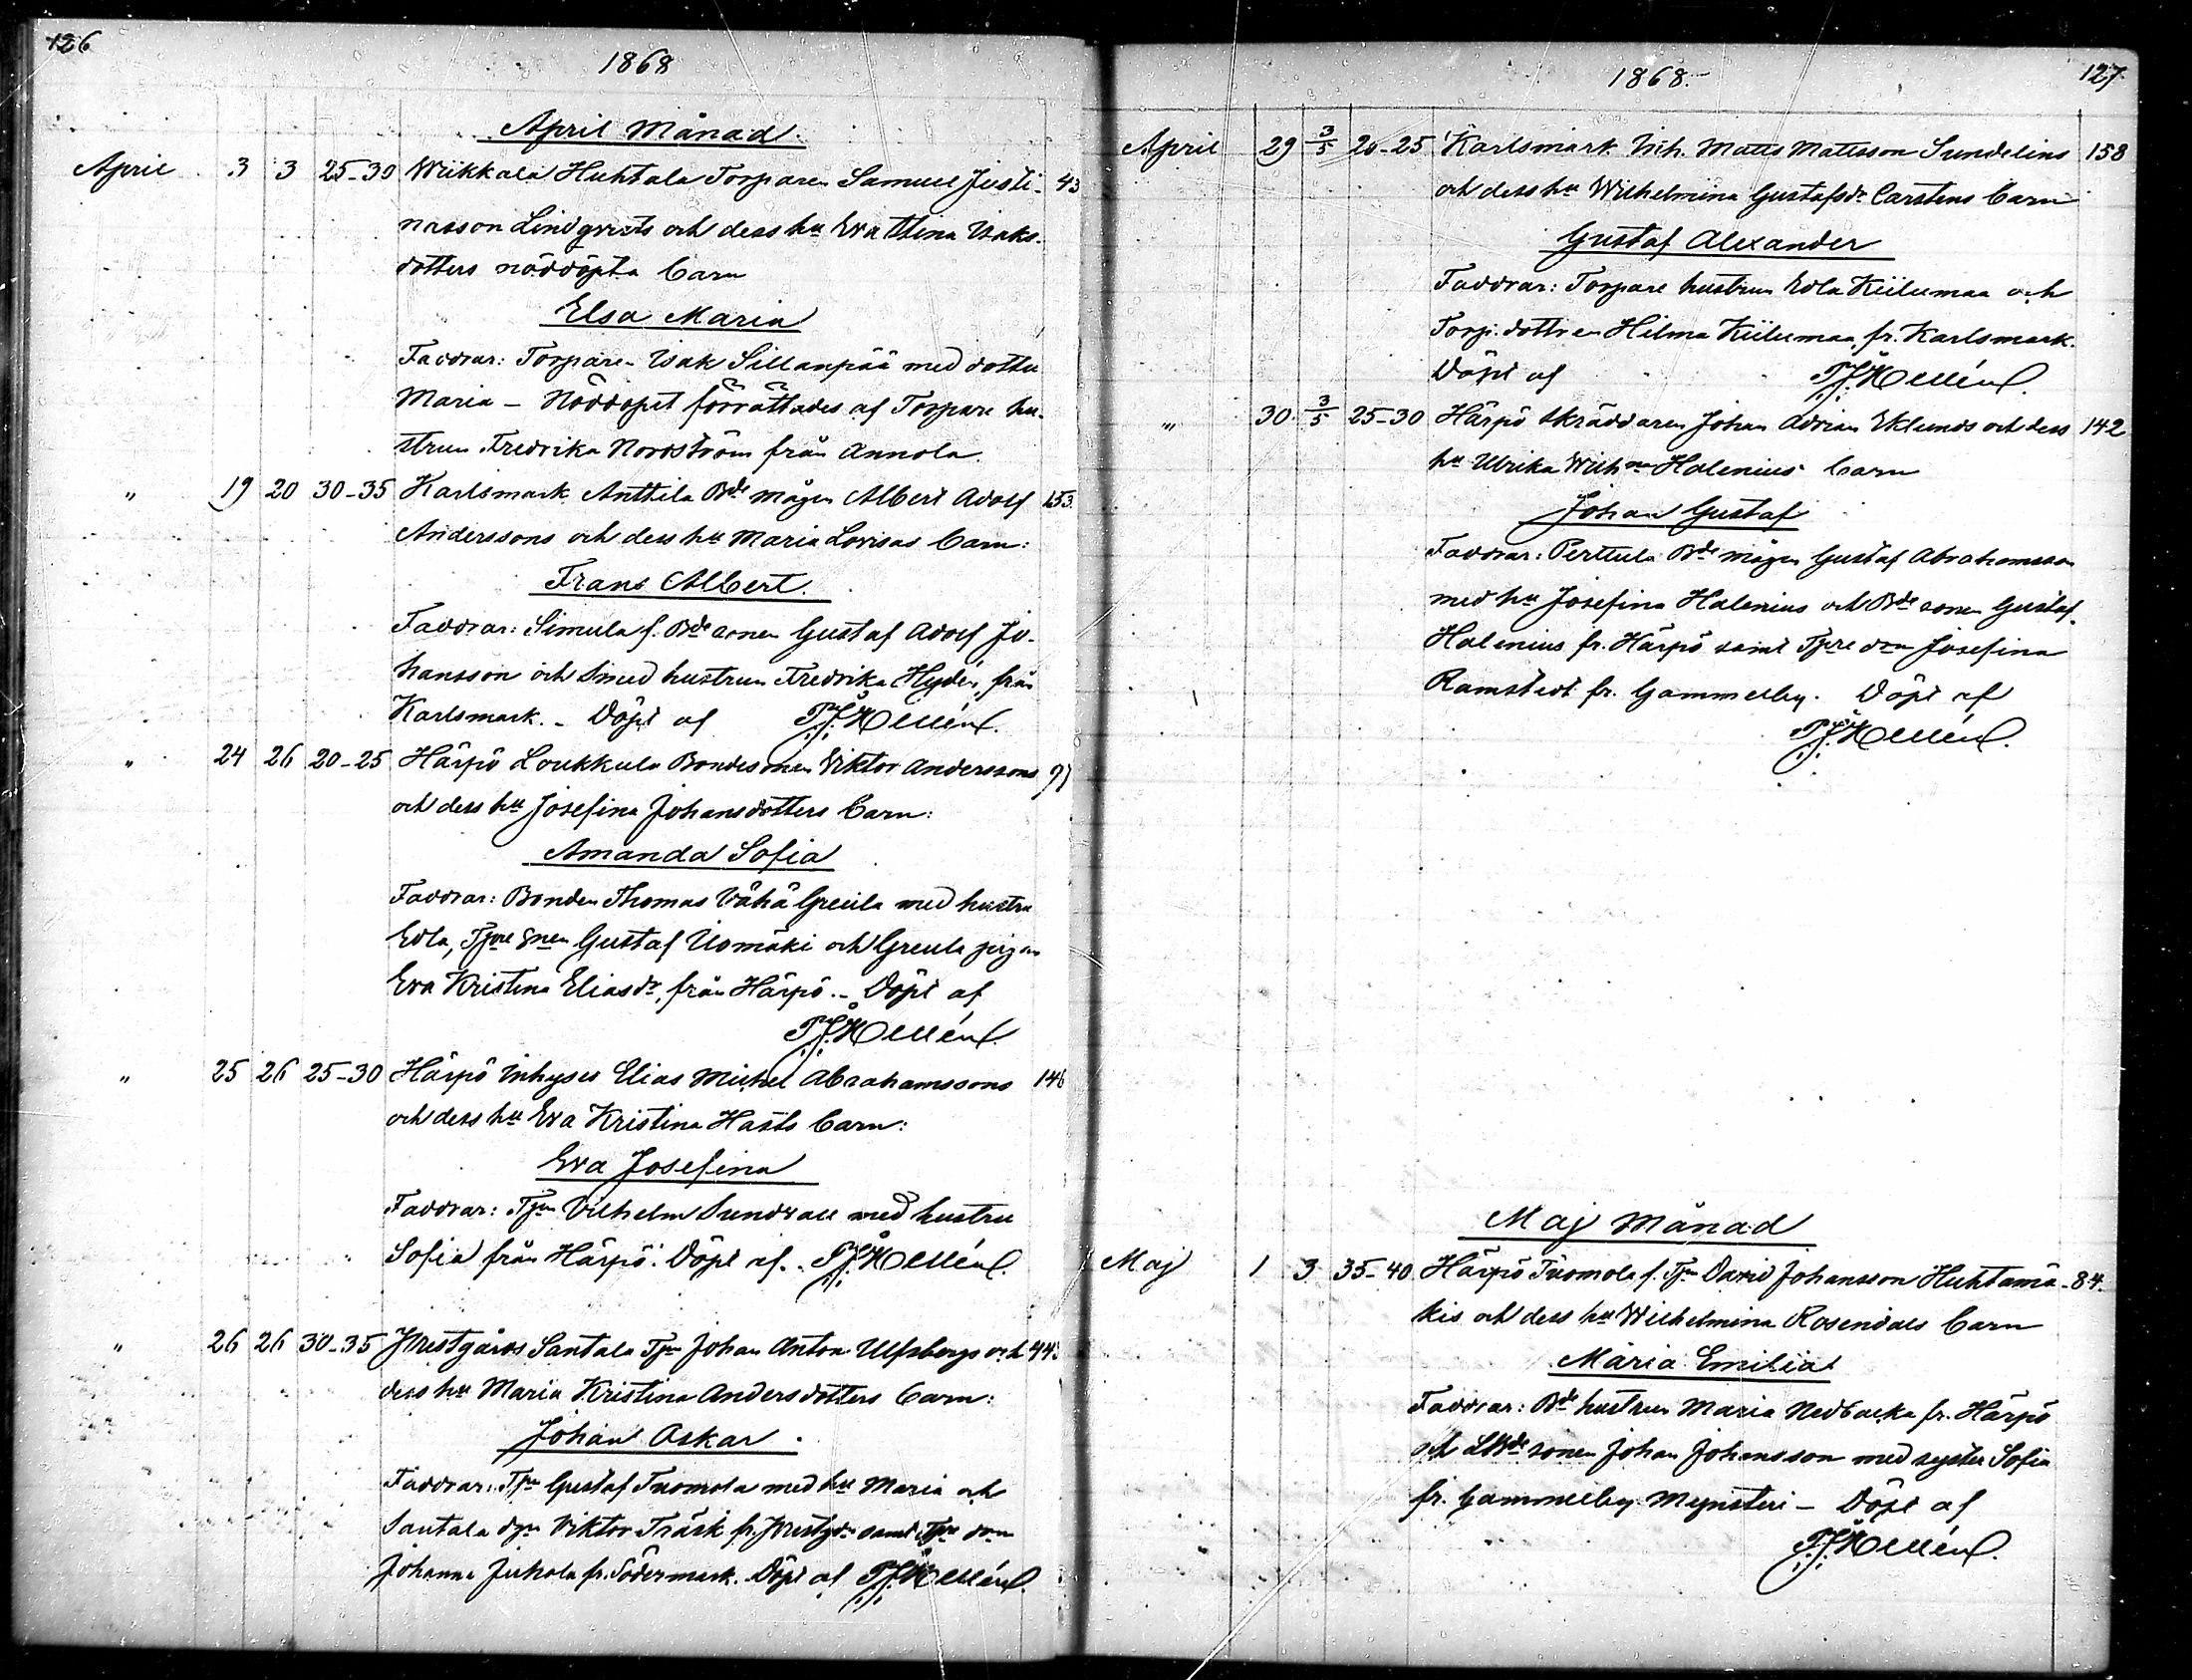 126
1868
April Månad.
April 3 3 25-30 Wiikkala Huhtala Torparen Samuel Justi- 43
nasson Lindqvists och dess hu Eva Stina Isaks-
dotters nöddöpta barn
Elsa Maria
Faddrar: Torparen Isak Sillanpää med dotter
Maria – Nöddopet förrättades af Torpare hu-
strun Fredrika Nordström från Annola.
" 19 20 30-35 Karlsmark Anttila Bde mågen Albert Adolf 153
Anderssons och dess hu Maria Lovisas barn:
Frans Albert.
Faddrar: Simula f. Bde sonen Gustaf Adolf Jo-
hansson och Smed hustrun Fredrika Hydén, från
Karlsmark. – Döpt af P.J. Hellén.
" 24 26 20-25 Härpö Loukkula Bondesonen Viktor Anderssons 97
och dess hu Josefina Johansdotters barn:
Amanda Sofia
Faddrar: Bonden Thomas Vähä Greula med hustru
Edla, Tpre snen Gustaf Uomäki och Greula pigan
Eva Kristina Eliasdr, från Härpö. – Döpt af
P.J. Hellén.
" 25 26 25-30 Härpö Inhyses Elias Michel Abrahamssons 146
och dess hu Eva Kristina Hasts barn:
Eva Josefina
Faddrar: Tpn Vilhelm Sundvall med hustru
Sofia från Härpö. Döpt af. P.J. Hellén.
" 26 26 30-35 Prestgårds Santala Tpn Johan Anton Ulfsbergs och 443
dess hu Maria Kristina Andersdotters barn:
Johan Oskar.
Faddrar: Tpn Gustaf Tuomola med hu Maria och
Santala dgn Viktor Träsk fr. Prestgdn samt Tpre drn
Johanna Jukola fr. Södermark. Döpt af P.J. Hellén.
1868.
127
April 29 3/5 20-25 Karlsmark Inh. Matts Mattsson Sundelins 158
och dess hu Wilhelmina Gustafsdr Carstens barn
Gustaf Alexander
Faddrar: Torpare hustrun Edla Kiilumaa och
Torp. dottren Hilma Kiilumaa, fr. Karlsmark.
Döpt af P.J. Hellén.
" 30 3/5 25-30 Härpö Skräddaren Johan Adrian Eklunds och dess 142
hu Ulrika Wilhna Holenius barn
Johan Gustaf
Faddrar: Perttula Bde mågen Gustaf Abrahamsson
med hu Josefina Holenius och Bde sonen Gustaf
Holenius fr. Härpö samt Tpre drn Josefina
Ramstedt fr. Gammelby. Döpt af
P.J. Hellén.
Maj Månad
Maj 1 3 35-40 Härpö Tuomola f. Tpn David Johansson Huhtamä- 84.
kis och dess hu Wilhelmina Rosendals barn
Maria Emilia
Faddrar: Bde hustrun Maria Nedbacka fr. Härpö
och LBde sonen Johan Johansson med syster Sofia
fr. Gammelby Mynsteri – Döpt af
P.J. Hellén.